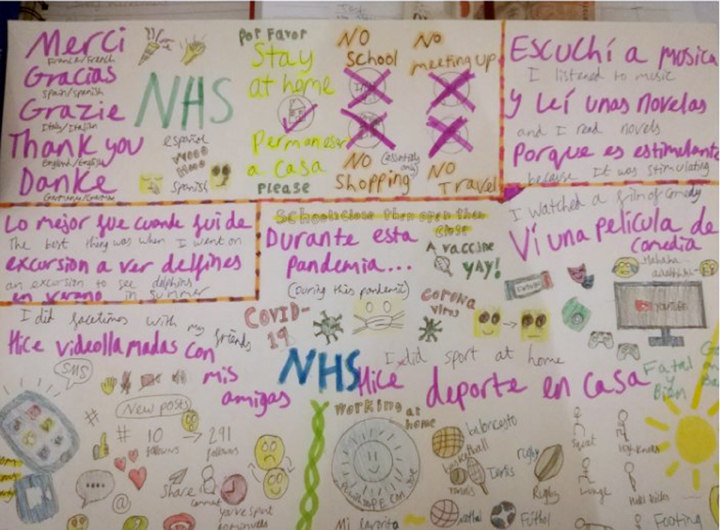 Merci
France/French
Gracias
Spain/Spanish
Grazie
Italy/Italian
Thank you
England/English
Danke
Germany/German
NHS
español
Spanish
Por Favor
Stay
at home
Permanecer
a casa
Please
NO
School
No
meeting up
NO (essentials only)
Shopping
NO
Travel
Escuchí a musica
I listened to music
y leí unas novelas
and I read novels
porque es estimulante
because It was stimulating
Lo mejor fue cuando fui de
The best thing was when I went on
excursion a ver delfines
an excursion to see dolphins
en verano in summer
Schools close then open then
close
Durante esta
Pandemia...
(During this pandemic)
A vaccine
yay!
COVID-
19
Corona
virus
I watched a film of comedy
Ví una película de
comedia
YOUTUBE
I did facetimes with my friends
Hice videollamadas con
mis
amigas
SMS
New posts
# 10 → 291
follows follows
Share
@
NHS
I did sport at home
Hice deporte en casa
Fatal
y
Bien
Working at
home
baloncesto
basketball
Tenis
Tennis
rugby
Rugby
Squat
Lunge
High knees
Fútbol
Footing
Mi favorito